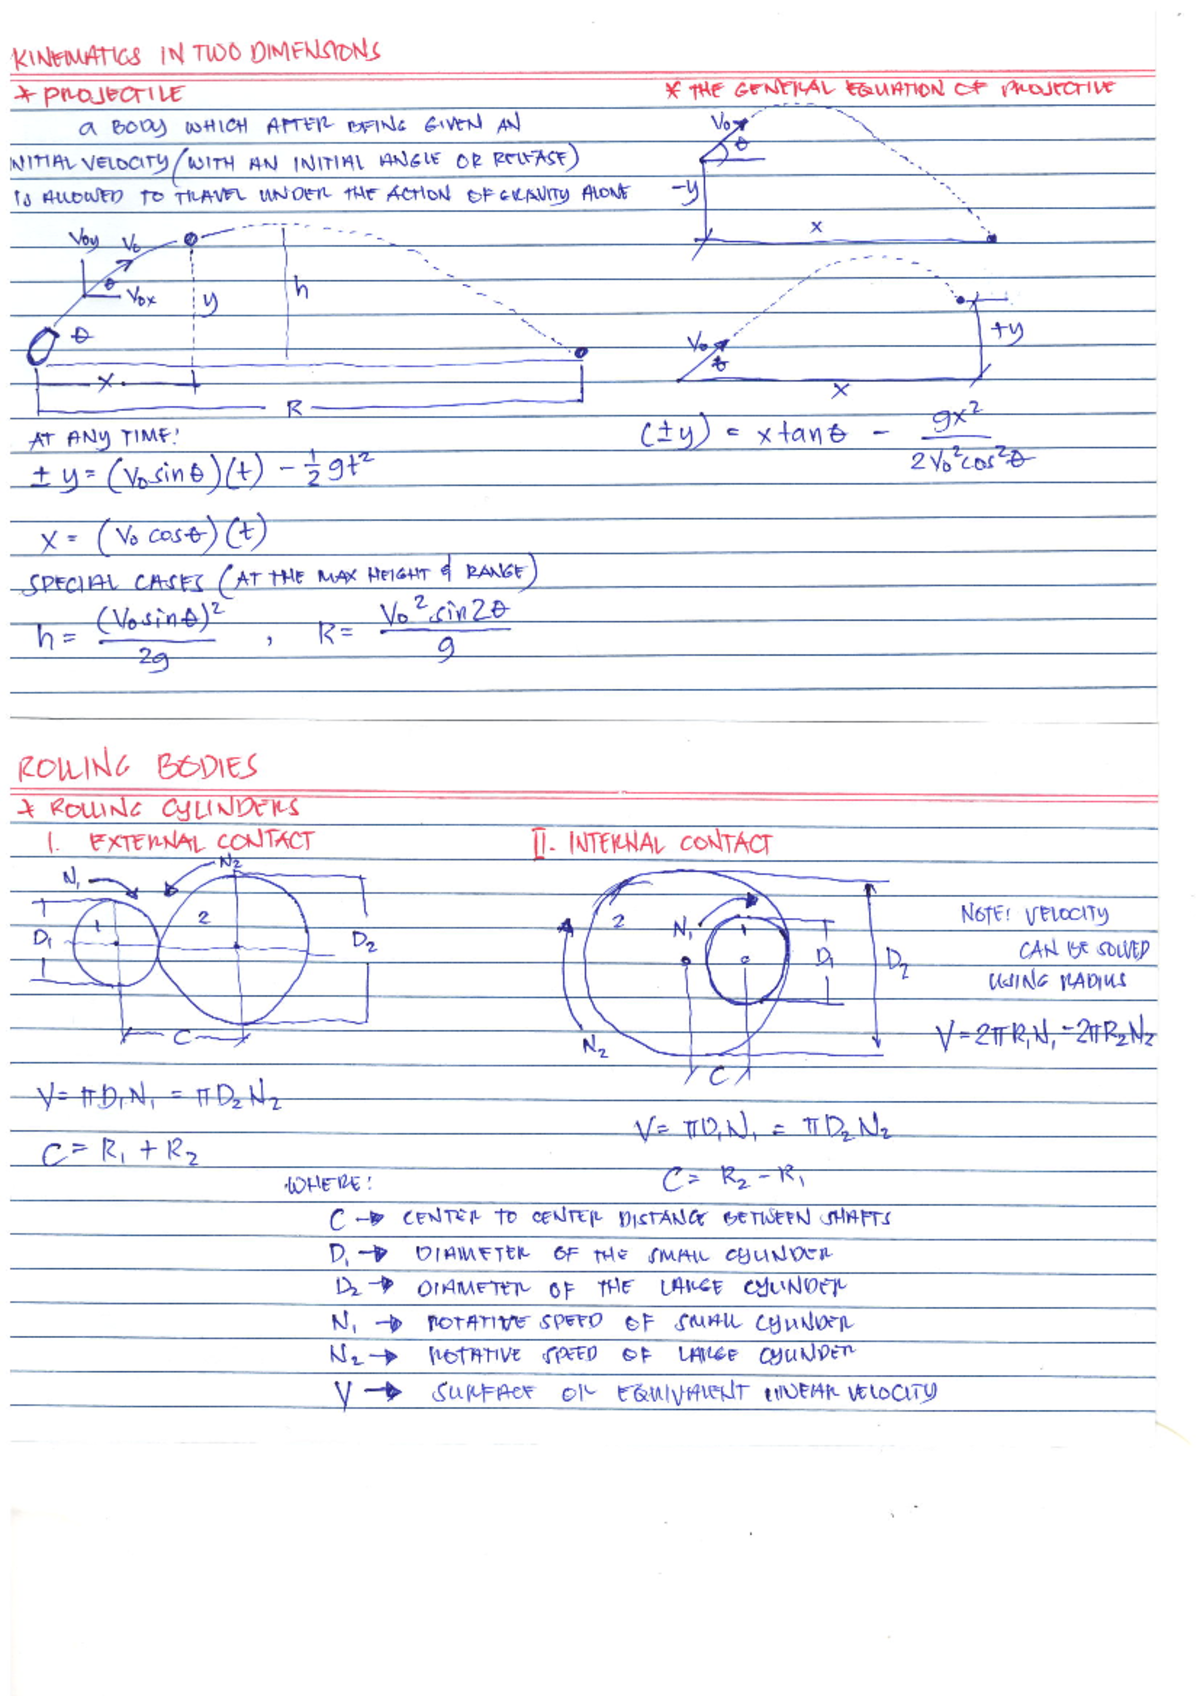 KINEMATICS IN TWO DIMENSIONS
* PROJECTILE
a BODY WHICH AFTER BEING GIVEN AN
INITIAL VELOCITY (WITH AN INITIAL ANGLE OR RELEASE)
IS ALLOWED TO TRAVEL UNDER THE ACTION OF GRAVITY ALONE
Voy Vo
θ Vox
y
h
θ
x
R
AT ANY TIME:
± y = (Vo sin θ)(t) - 1/2 gt²
x = (Vo cos θ)(t)
SPECIAL CASES (AT THE MAX HEIGHT & RANGE)
h = (Vo sin θ)² / 2g , R = Vo² sin 2θ / g
* THE GENERAL EQUATION OF PROJECTIVE
Vo
θ
-y
x
Vo
θ
+y
x
(±y) = x tan θ - gx² / 2Vo² cos² θ
ROLLING BODIES
* ROLLING CYLINDERS
I. EXTERNAL CONTACT
N₁ N₂
1 2
D₁ D₂
C
V = πD₁N₁ = πD₂N₂
C = R₁ + R₂
II. INTERNAL CONTACT
2 N₁ 1
D₁ D₂
N₂
C
V = πD₁N₁ = πD₂N₂
C = R₂ - R₁
NOTE: VELOCITY
CAN BE SOLVED
USING RADIUS
V = 2πR₁N₁ - 2πR₂N₂
WHERE:
C → CENTER TO CENTER DISTANCE BETWEEN SHAFTS
D₁ → DIAMETER OF THE SMALL CYLINDER
D₂ → DIAMETER OF THE LARGE CYLINDER
N₁ → ROTATIVE SPEED OF SMALL CYLINDER
N₂ → ROTATIVE SPEED OF LARGE CYLINDER
V → SURFACE OR EQUIVALENT LINEAR VELOCITY